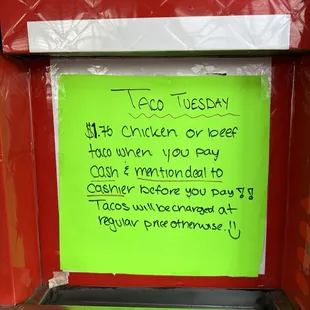 Taco Tuesday
$1.75 Chicken or beef
taco when you pay
cash & mention deal to
cashier before you pay!!
Tacos will be charged at
regular price otherwise. :)